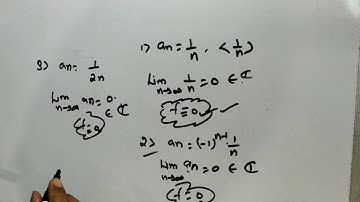 1) an = 1/n , ⟨1/n⟩
Lim n→∞ 1/n = 0 ∈ ℂ
f=0
2) an = (-1)^{n-1} 1/n
Lim n→∞ an = 0 ∈ ℂ
f=0
3) an = 1/2n
Lim n→∞ an = 0
∈ ℂ
f=0